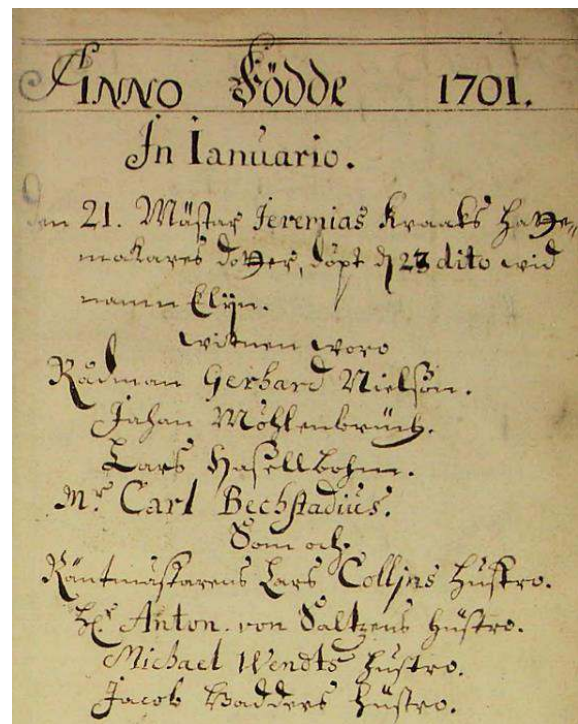 ANNO Födde 1701.
In Ianuario.
den 21. Mästar Jeremias Kraaks hatte=
makares dotter, döpt d 23 dito wid
namn Elijn.
witnen woro
Rådman Gerhard Nielson.
Johan Möhlenbrück.
Lars Hasellbohm.
Mr Carl Bechstadius.
Som och
Räntmästarens Lars Colljns hustro.
Hr Anton. von Saltzens hüstro.
Michael Wendts hustro.
Jacob Badders hüstro.